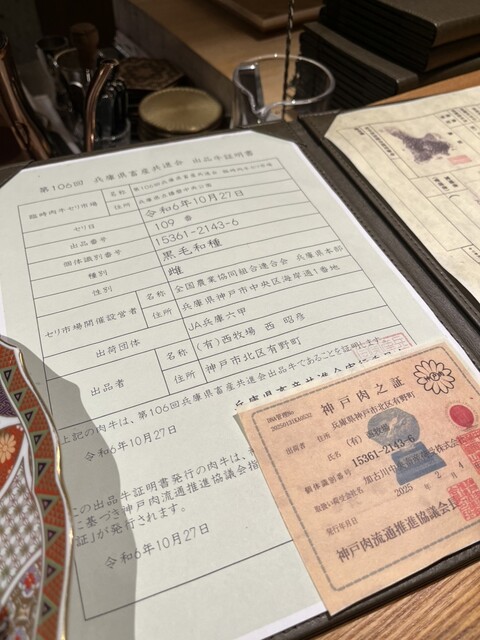 第106回 兵庫県畜産共進会 出品牛証明書
臨時肉牛セリ市場
名称 第106回兵庫県畜産共進会 臨時肉牛セリ市場
住所 兵庫県立播磨中央公園
セリ日 令和6年10月27日
出品番号 109 番
個体識別番号 15361-2143-6
種別 黒毛和種
性別 雌
セリ市場開催設営者
名称 全国農業協同組合連合会 兵庫県本部
住所 兵庫県神戸市中央区海岸通1番地
出荷団体 JA兵庫六甲
出品者
名称 (有)西牧場 西 昭彦
住所 神戸市北区有野町
上記の肉牛は、第106回兵庫県畜産共進会出品牛であることを証明します。
令和6年10月27日
兵庫県畜産共進会
この出品牛証明書発行の肉牛は、
に基づき神戸肉流通推進協議会指
証」が発行されます。
令和6年10月27日
神戸肉之証
DNA管理No.
出荷者 住所 兵庫県神戸市北区有野町
氏名 (有)
個体識別番号 15361-2143-6
取扱い荷受会社名 加古川中央畜産荷受株式会社
発行年月日 2025 2 4
神戸肉流通推進協議会